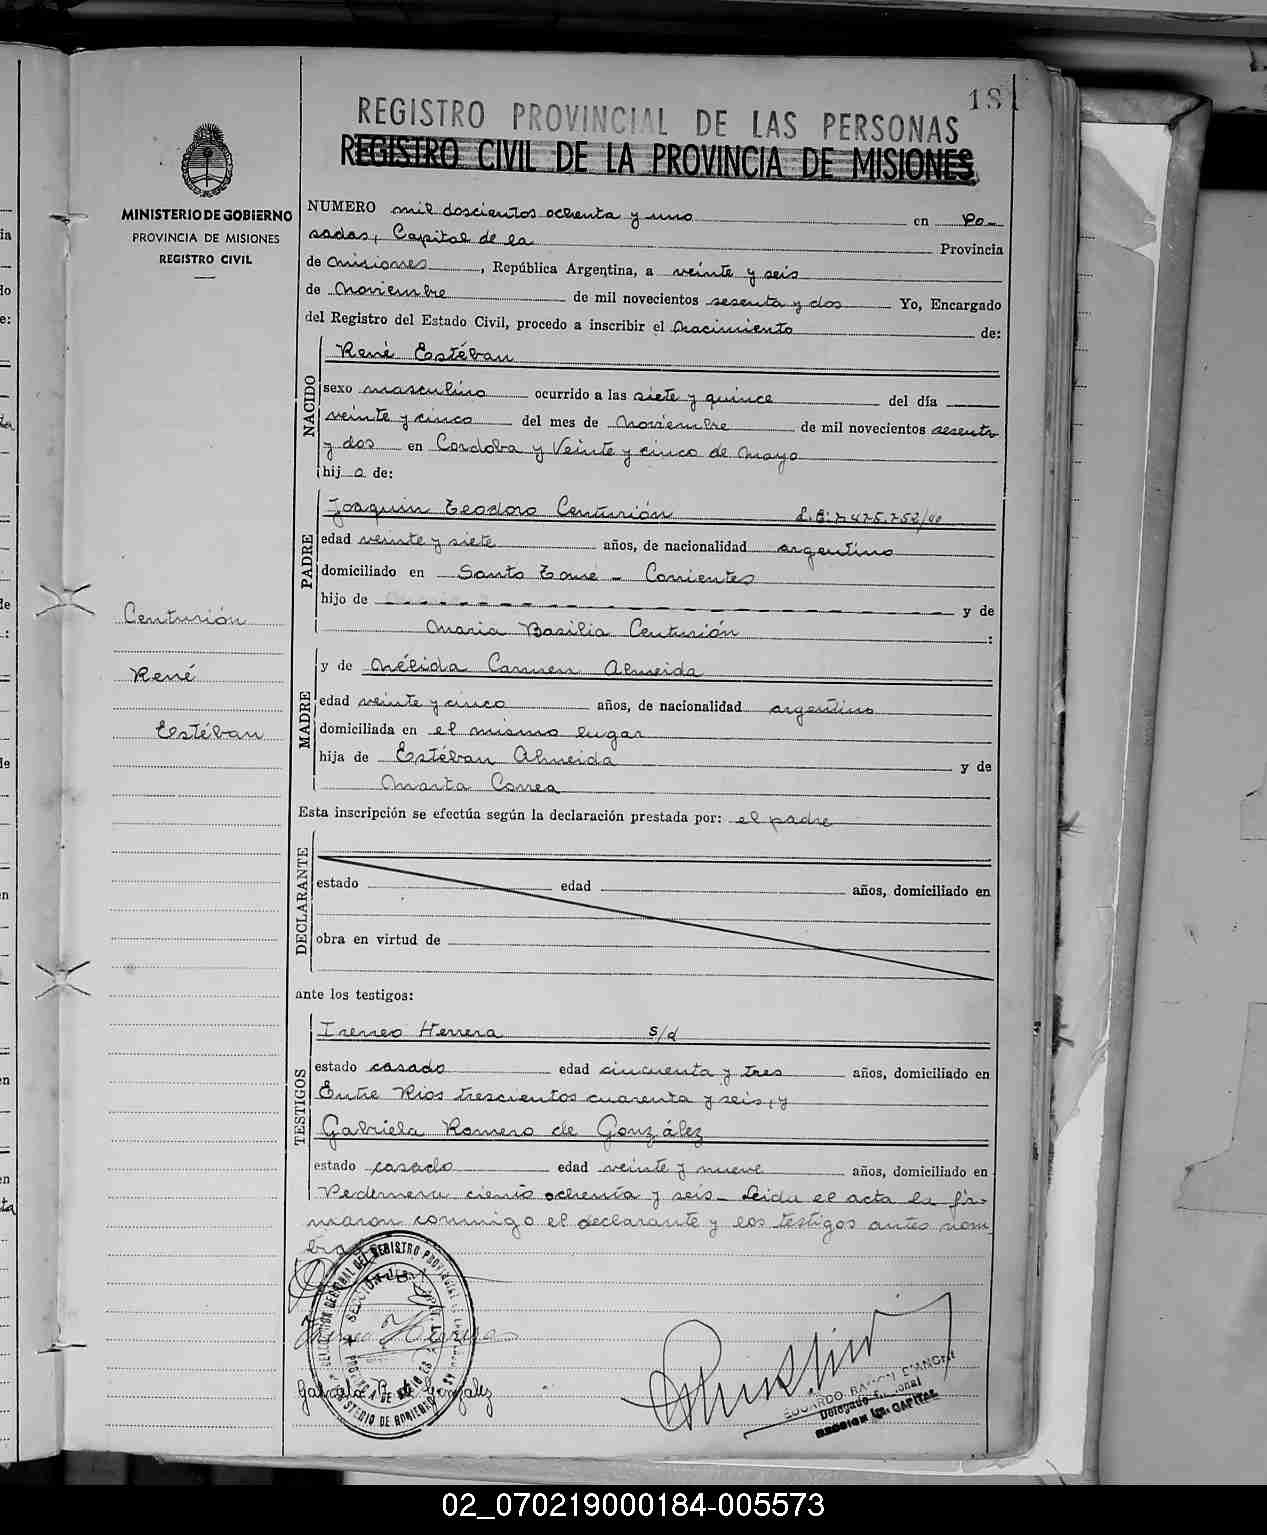 181
REGISTRO PROVINCIAL DE LAS PERSONAS
REGISTRO CIVIL DE LA PROVINCIA DE MISIONES
MINISTERIO DE GOBIERNO
PROVINCIA DE MISIONES
REGISTRO CIVIL
NUMERO mil doscientos ochenta y uno en Po-
sadas, Capital de la Provincia
de Misiones, República Argentina, a veinte y seis
de Noviembre de mil novecientos sesenta y dos Yo, Encargado
del Registro del Estado Civil, procedo a inscribir el Nacimiento de:
NACIDO
René Estéban
sexo masculino ocurrido a las siete y quince del día
veinte y cinco del mes de Noviembre de mil novecientos sesenta
y dos en Cordoba y Veinte y cinco de Mayo
hij o de:
PADRE
Joaquin Teodoro Centurión L.E: 7.475.752/40
edad veinte y siete años, de nacionalidad argentino
domiciliado en Santo Tomé - Corrientes
hijo de - - - - - - - - - - y de
Maria Basilia Centurión :
Centurión
René
Estéban
MADRE
y de Nélida Carmen Almeida
edad veinte y cinco años, de nacionalidad argentino
domiciliada en el mismo lugar
hija de Estéban Almeida y de
Marta Correa
Esta inscripción se efectúa según la declaración prestada por: el padre
DECLARANTE
estado edad años, domiciliado en
obra en virtud de
ante los testigos:
TESTIGOS
Ireneo Herrera s/d
estado casado edad cincuenta y tres años, domiciliado en
Entre Rios trescientos cuarenta y seis, y
Gabriela Romero de González
estado casado edad veinte y nueve años, domiciliado en
Pedernera ciento ochenta y seis - Leida el acta la fir-
maron conmigo el declarante y los testigos antes nom
Ireneo Herrera
Gabriela R. de González
EDUARDO RAMON
Delegado
SECCION CAPITAL
02_070219000184-005573